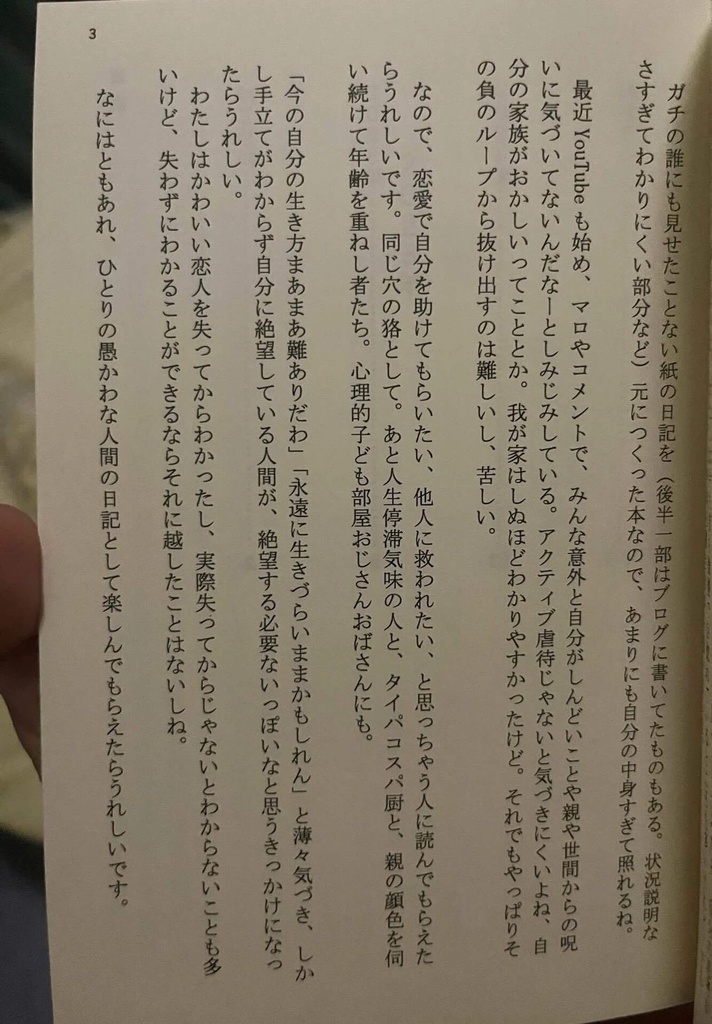 ガチの誰にも見せたことない紙の日記を（後半一部はブログに書いてたものもある。状況説明な
さすぎてわかりにくい部分など）元につくった本なので、あまりにも自分の中身すぎて照れるね。
最近YouTubeも始め、マロやコメントで、みんな意外と自分がしんどいことや親や世間からの呪
いに気づいてないんだなーとしみじみしている。アクティブ虐待じゃないと気づきにくいよね、自
分の家族がおかしいってこととか。我が家はしぬほどわかりやすかったけど。それでもやっぱりそ
の負のループから抜け出すのは難しいし、苦しい。
なので、恋愛で自分を助けてもらいたい、他人に救われたい、と思っちゃう人に読んでもらえた
らうれしいです。同じ穴の狢として。あと人生停滞気味の人と、タイパコスパ厨と、親の顔色を伺
い続けて年齢を重ねし者たち。心理的子ども部屋おじさんおばさんにも。
「今の自分の生き方まあまあ難ありだわ」「永遠に生きづらいままかもしれん」と薄々気づき、しか
し手立てがわからず自分に絶望している人間が、絶望する必要ないっぽいなと思うきっかけになっ
たらうれしい。
わたしはかわいい恋人を失ってからわかったし、実際失ってからじゃないとわからないことも多
いけど、失わずにわかることができるならそれに越したことはないしね。
なにはともあれ、ひとりの愚かわな人間の日記として楽しんでもらえたらうれしいです。
3